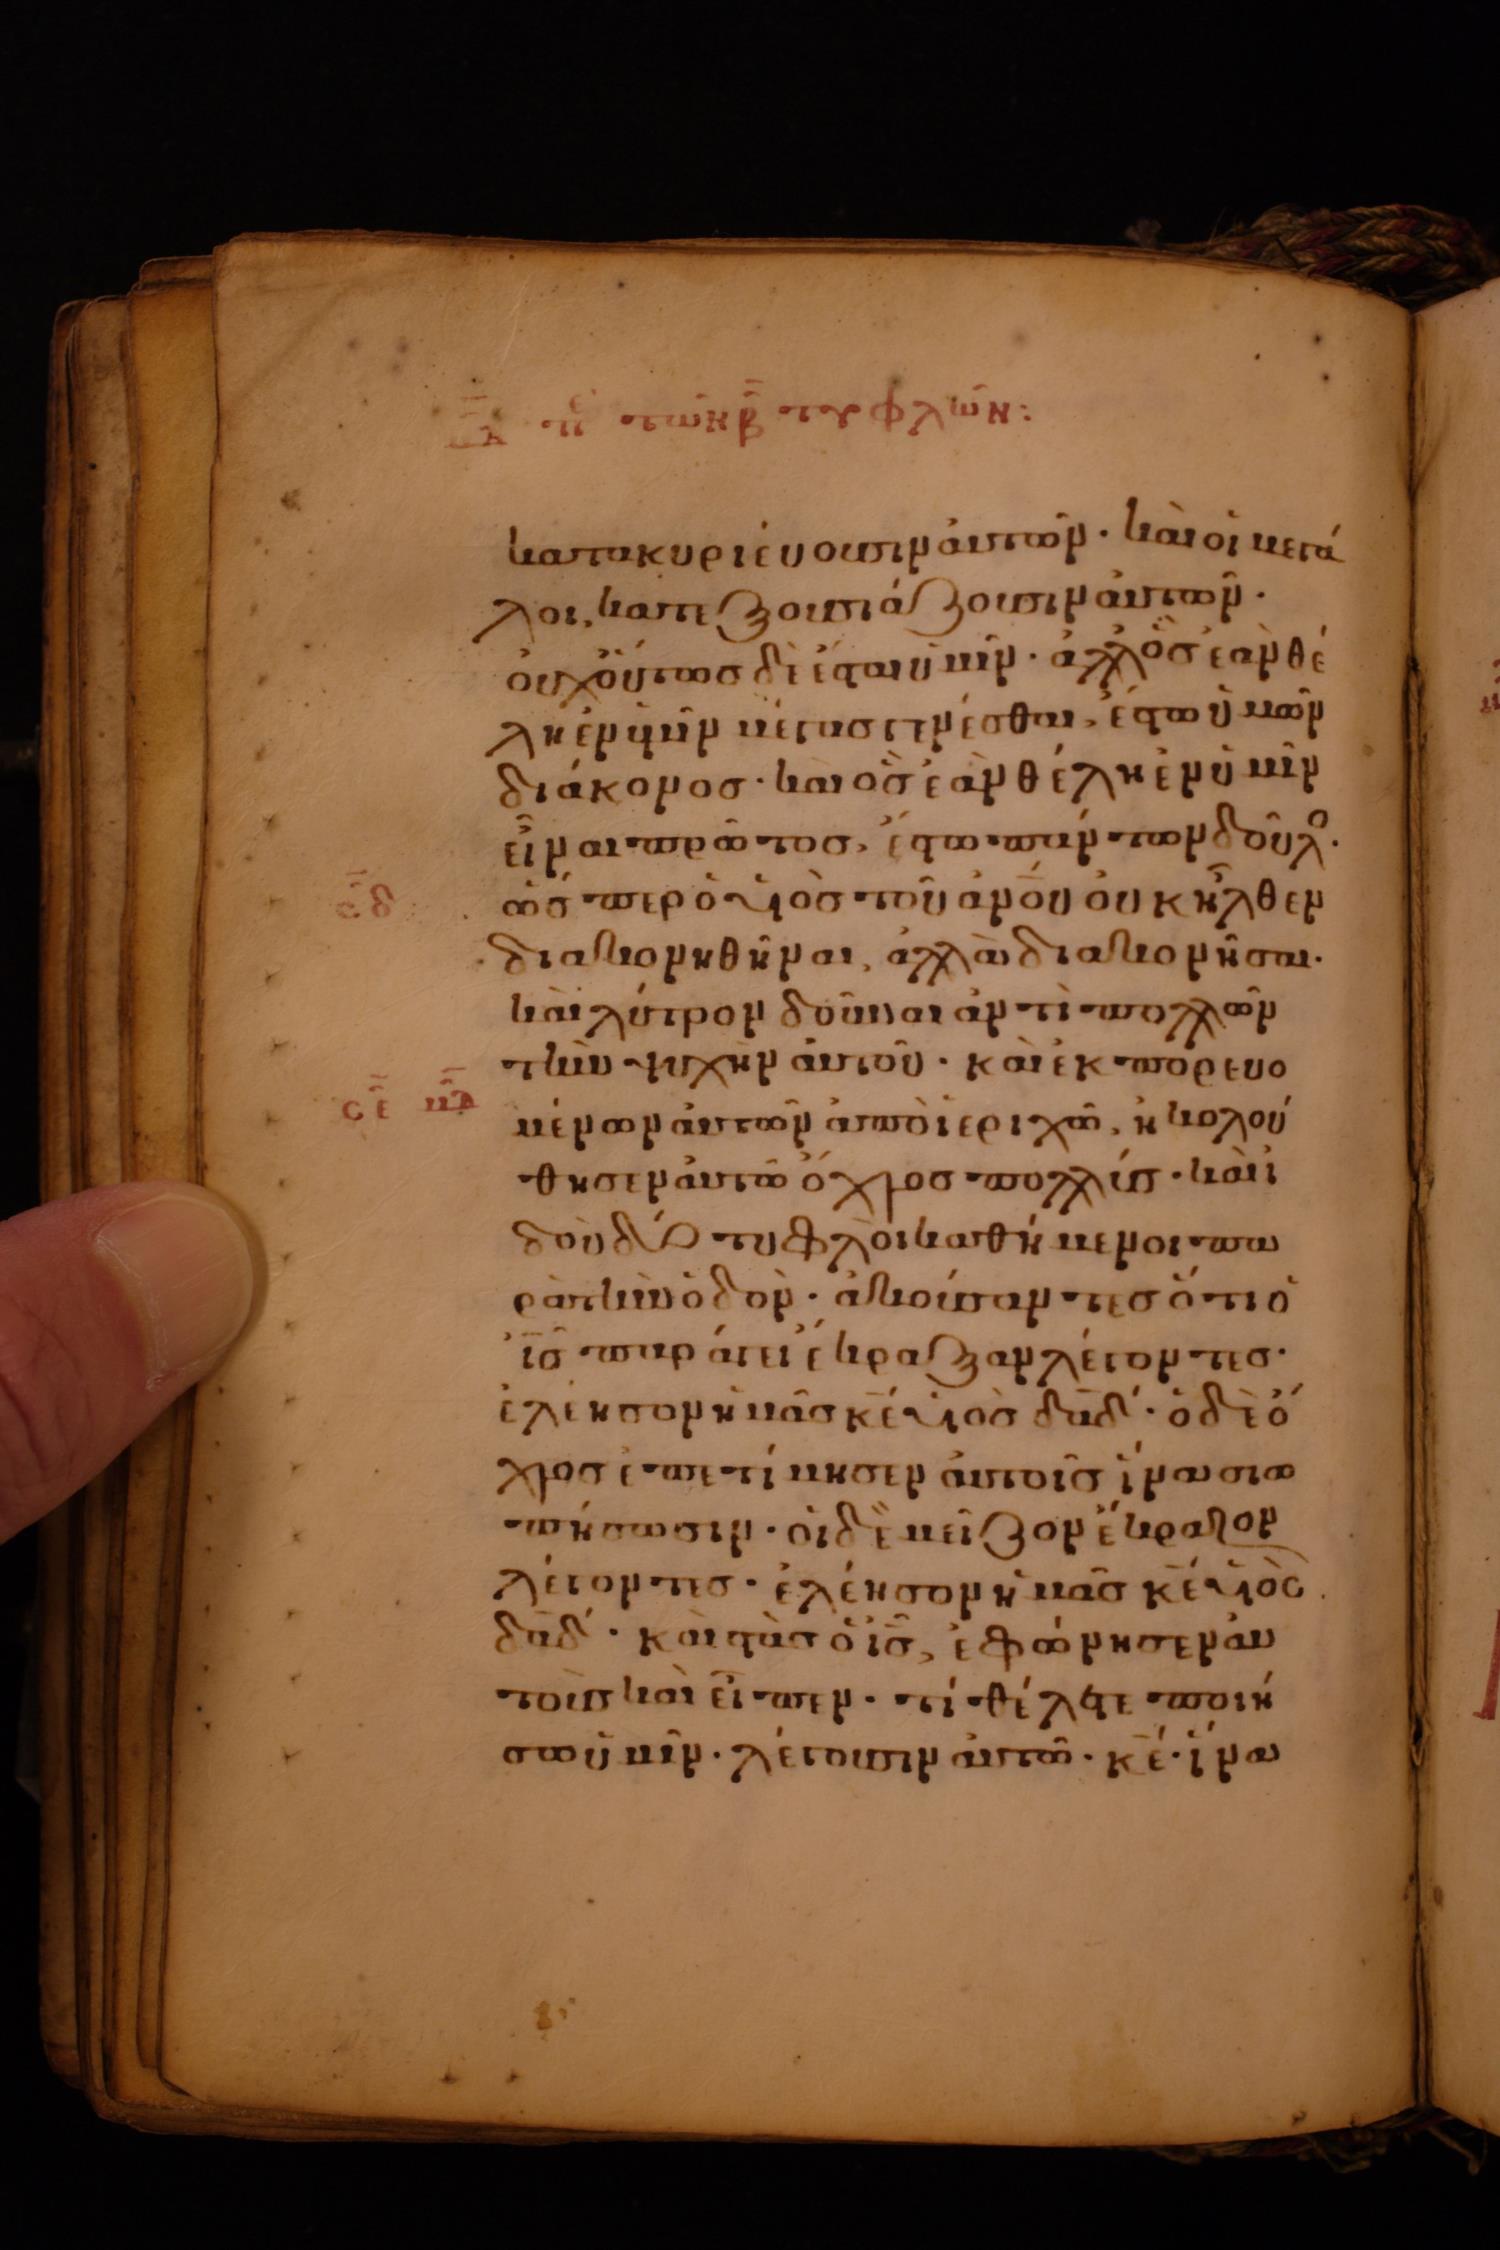 μα πε τῶν β̅ τυφλῶν:
κατακυριεύουσιν αὐτῶν· καὶ οἱ μεγά
λοι, κατεξουσιάζουσιν αὐτῶν·
οὐχ οὕτως δὲ ἔσται ὑμῖν· ἀλλ' ὃς ἐὰν θέ
λη ἐν ὑμῖν μέγας γενέσθαι, ἔστω ὑμῶν
διάκονος· καὶ ὃς ἐὰν θέλη ἐν ὑμῖν
εἶναι πρῶτος, ἔστω πάντων δοῦλο·
σ̅δ̅
ὥσπερ ὁ υἱὸς τοῦ ἀν̅ου οὐκ ἦλθεν
διακονηθῆναι, ἀλλὰ διακονῆσαι·
καὶ λύτρον δοῦναι ἀντὶ πολλῶν
τὴν ψυχὴν αὐτοῦ· καὶ ἐκπορευο
σ̅ε̅ μ̅α̅
μένων αὐτῶν ἀπὸ ἱεριχῶ, ἠκολού
θησεν αὐτῶ ὄχλος πολλύς· καὶ ἰ
δοὺ δύο τυφλοὶ καθήμενοι πα
ρὰ τὴν ὁδὸν· ἀκούσαντες ὅτι ὁ
ι̅ς̅ παράγει ἔκραξαν λέγοντες·
ἐλέησον ἡμᾶς κ̅ε̅ υἱὸς δ̅α̅δ̅· ὁ δὲ ὄ
χλος ἐπετίμησεν αὐτοῖς ἵνα σιω
πήσωσιν· οἱ δὲ μεῖζον ἔκραζον
λέγοντες· ἐλέησον ἡμᾶς κ̅ε̅ υἱὸς
δ̅α̅δ̅· καὶ στὰς ὁ ι̅ς̅, ἐφώνησεν αὐ
τοὺς καὶ εἶπεν· τί θέλετε ποιή
σω ὑμῖν· λέγουσιν αὐτῶ· κ̅ε̅· ἵνα